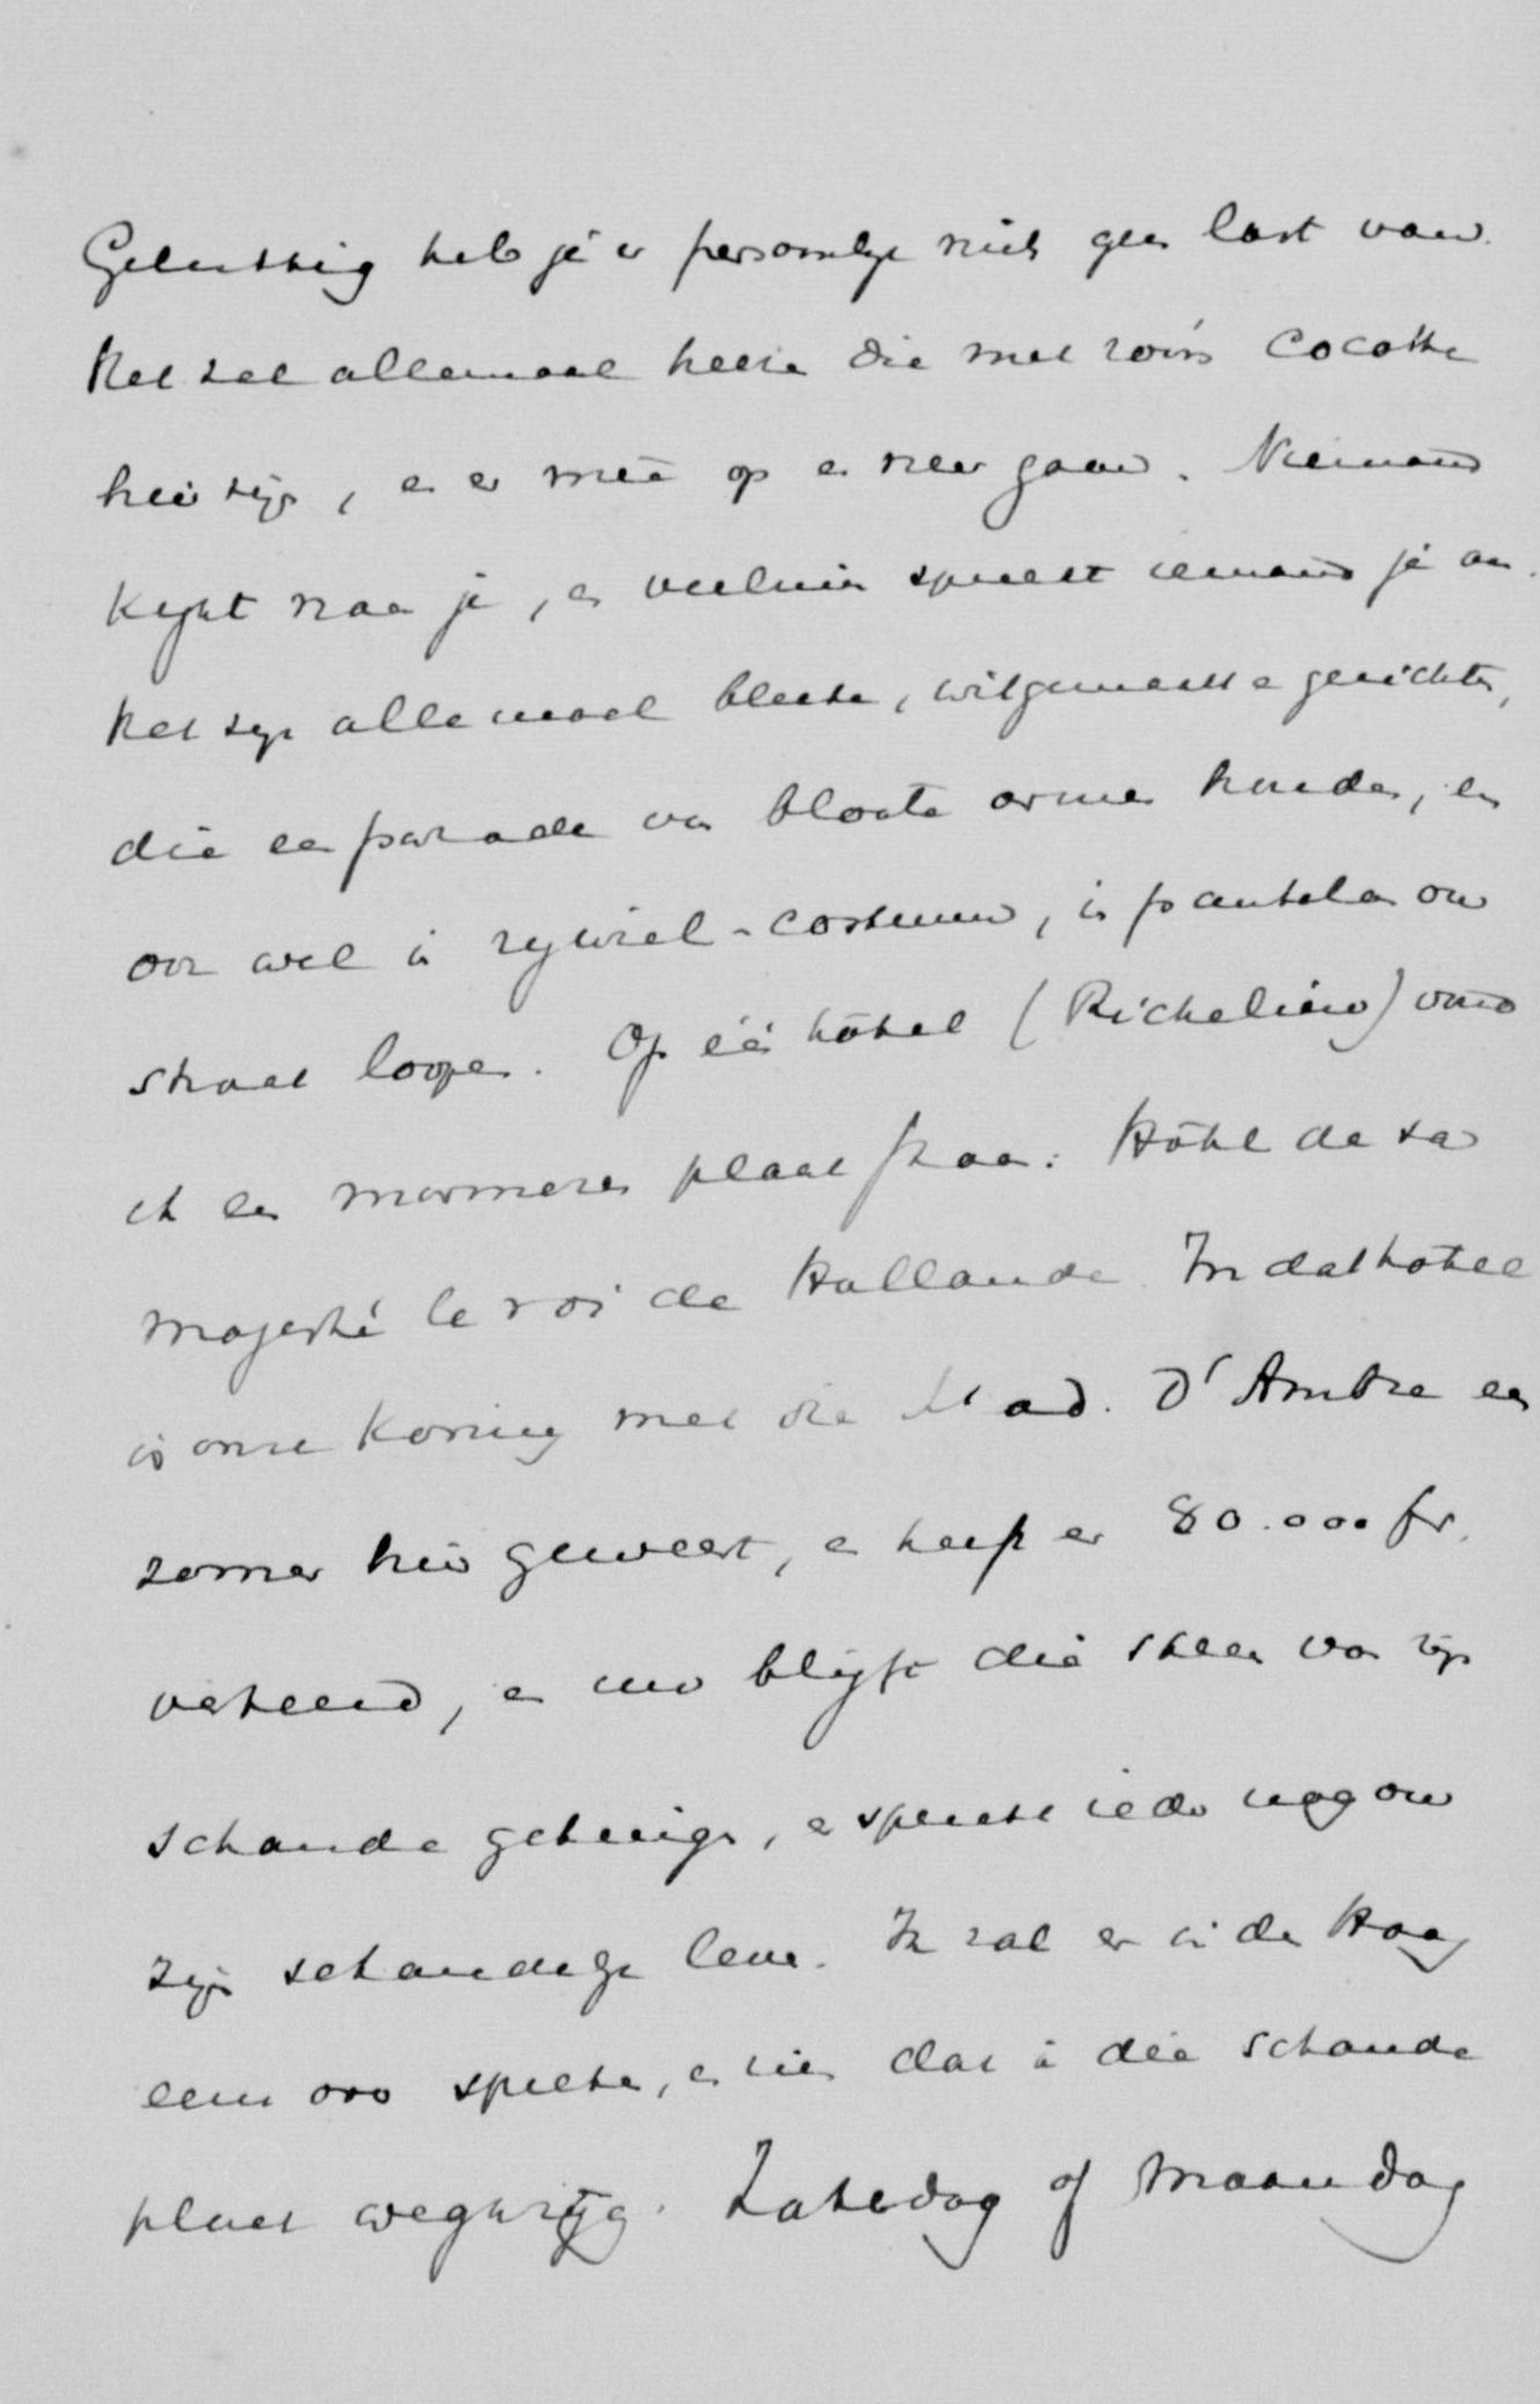 Gelukkig heb je er persoonlijk niets geen last van.
Het zal allemaal heeren die met zoo'n cocotte
hier zijn, en er meê op en neer gaan. Niemand
kijkt naar je, en veelmin spreekt iemand je aan.
Het zijn allemaal bleeke, witgemaakte gezichten,
die een parade van bloote armen houden, en
ook wel in rijwiel-costuum, in pantalon om
straat loopen. Op één hôtel (Richelieu) vind
ik een marmeren plaat staan: Hôtel de sa
majesté le roi de Hollande. In dat hôtel
is onze Koning met die Mad. D'Ambre een
zomer hier geweest, en heeft er 80.000 fr.
verteerd, en nu blijft die steen van zijn
schande getuigen, en spreekt ieder nog om
zijn schandelijk leven. Ik zal er in den Haag
eens over spreken, en zien dat ik die schande
plaat wegkrijg. Zaterdag of Maandag